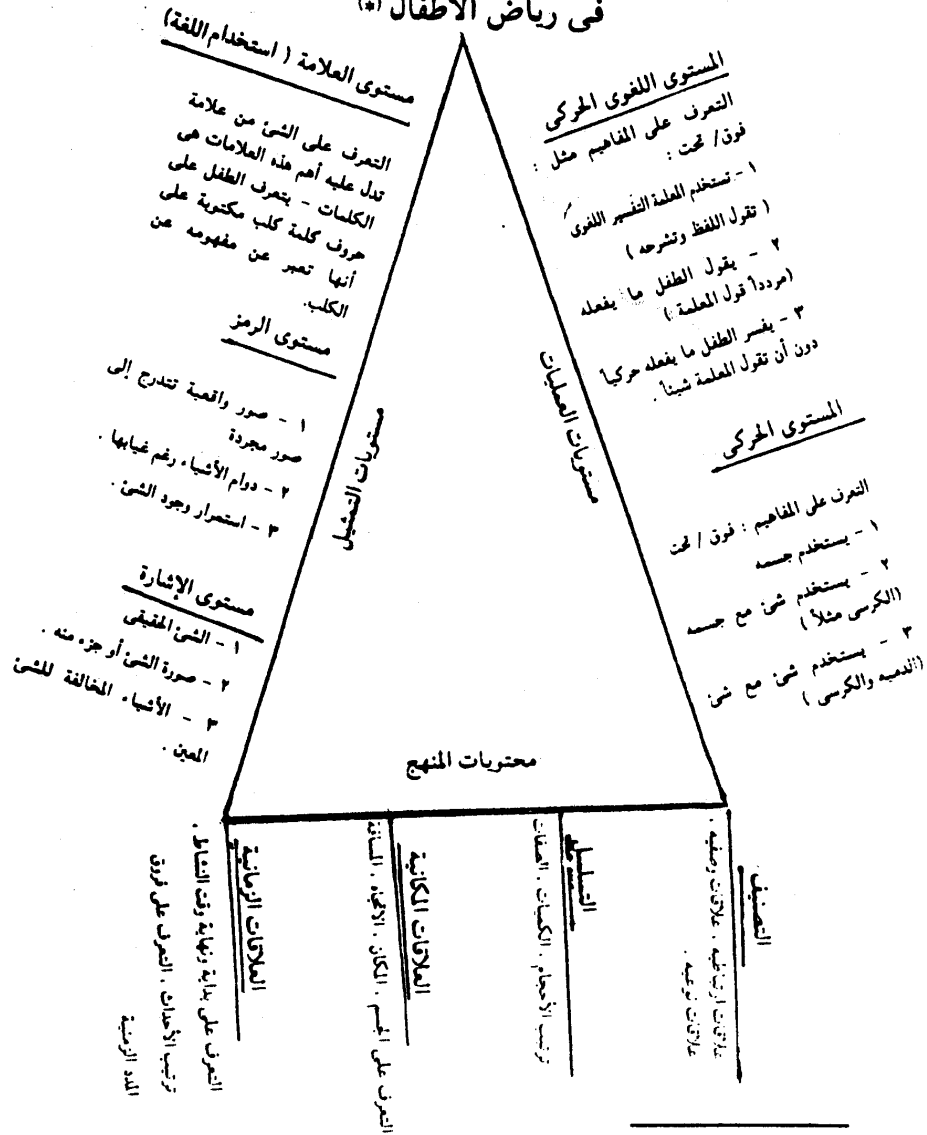 فى رياض الأطفال (*)
المستوى اللغوى الحركى
التعرف على المفاهيم مثل :
فوق/ تحت :
١ - تستخدم المعلمة التفسير اللغوى
( تقول اللفظ وتشرحه )
٢ - يقول الطفل ما يفعله
(مردداً قول المعلمة )
٣ - يفسر الطفل ما يفعله حركياً
دون أن تقول المعلمة شيئاً .
المستوى الحركى
التعرف على المفاهيم : فوق / تحت
١ - يستخدم جسمه
٢ - يستخدم شئ مع جسمه
(الكرسى مثلاً )
٣ - يستخدم شئ مع شئ
(الدميه والكرسى )
مستويات العمليات
مستوى العلامة ( استخدام اللغة)
التعرف على الشئ من علامة
تدل عليه أهم هذه العلامات هى
الكلمات - يتعرف الطفل على
حروف كلمة كلب مكتوبة على
أنها تعبر عن مفهومه عن
الكلب.
مستوى الرمز
١ - صور واقعية تتدرج إلى
صور مجردة
٢ - دوام الأشياء رغم غيابها .
٣ - استمرار وجود الشئ .
مستوى الإشارة
١ - الشئ الحقيقى
٢ - صورة الشئ أو جزء منه .
٣ - الأشياء المخالفة للشئ
المعين .
مستويات التمثيل
محتويات المنهج
التصنيف
علاقات ارتباطيه ، علاقات وصفيه ،
علاقات نوعيه .
التسلسل
ترتيب الأحجام ، الكميات ، الصفات
العلاقات المكانية
التعرف على الجسم ، المكان ، الاتجاه ، المسافة
العلاقات الزمانية
التعرف على بداية ونهاية وقت النشاط ،
ترتيب الأحداث ، التعرف على فروق
المدد الزمنية